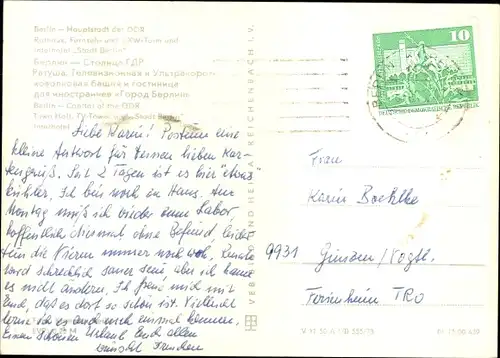 Berlin — Hauptstadt der DDR
Rathaus, Fernseh- und UKW-Turm und
Interhotel „Stadt Berlin"
Берлин — Столица ГДР
Ратуша, Телевизионная и Ультракорот-
коволновая башня и гостиница
для иностранцев «Город Берлин»
Berlin — Capital of the GDR
Town Hall, TV-Tower and
Interhotel
10
DEUTSCHE DEMOKRATISCHE REPUBLIK
VERLAG BILD UND HEIMAT REICHENBACH I. V.
Liebe Karin! Postum eine
kleine Antwort für Deinen lieben Kar-
tengruß. Seit 2 Tagen ist es hier etwas
kühler. Ich bin noch im Haus. Am
Montag muß ich wieder zum Labor,
hoffentlich diesmal ohne Befund, leider
tun die Nieren immer noch weh. Renate
wird schrecklich sauer sein, aber ich kann
es nicht ändern. Ich freue mich mit
Euch, daß es dort so schön ist. Vielleicht
lerne ich es auch einmal kennen.
Einen schönen Urlaub Euch allen
wünscht
Frau
Karin Boehlke
9931 Gunzen/Vogtl.
Ferienheim TRO